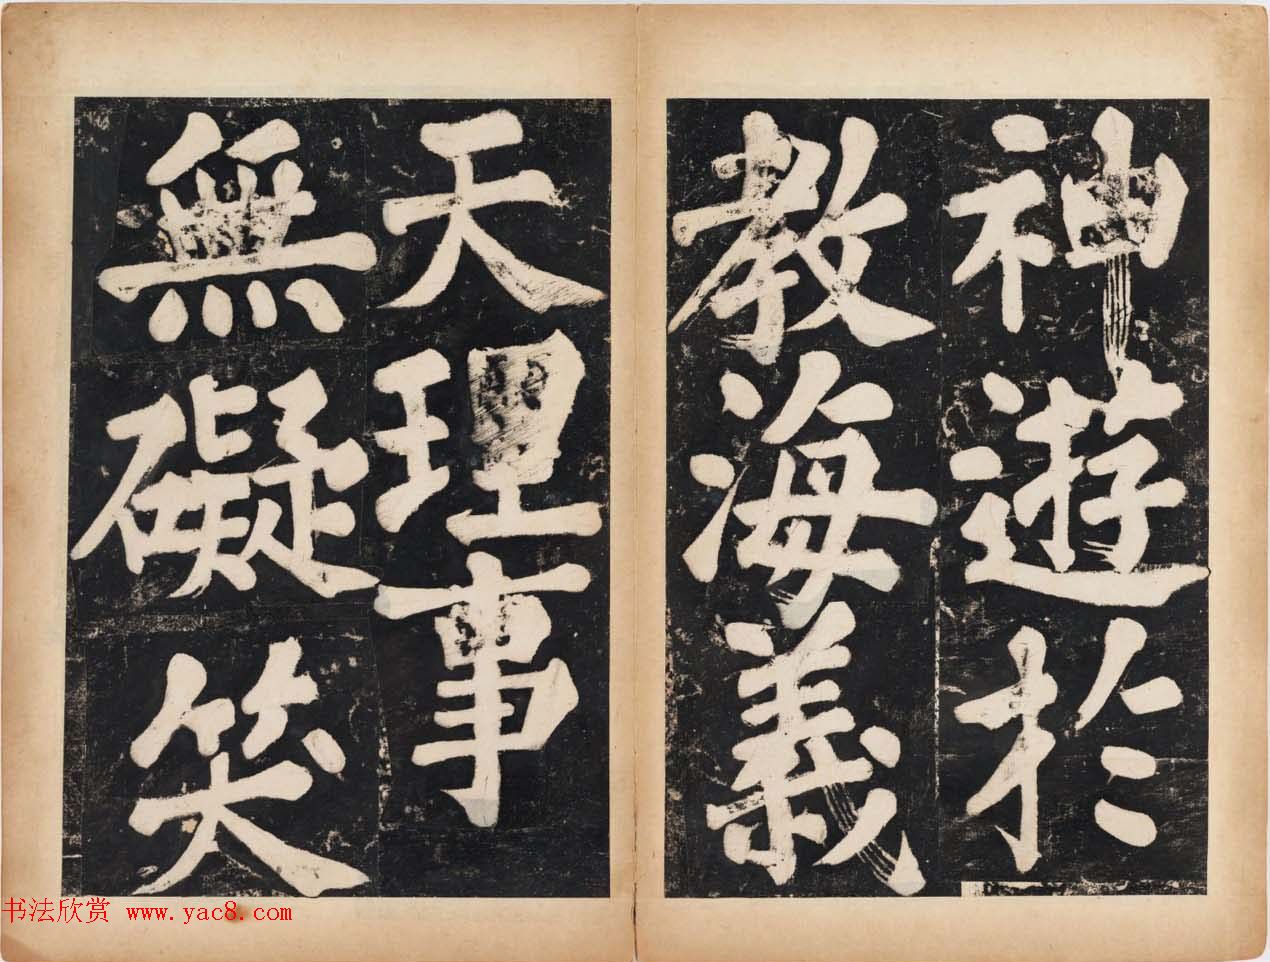 神遊於
教海義
天理事
無礙笑
书法欣赏 www.yac8.com